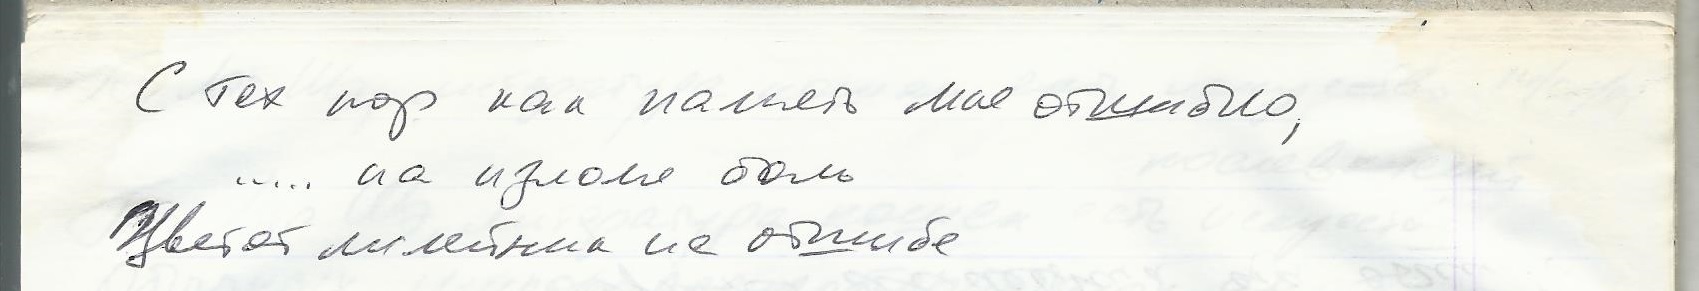 С тех пор как память мне отшибло,
..... на изломе боль
Цветёт лилейник на отшибе